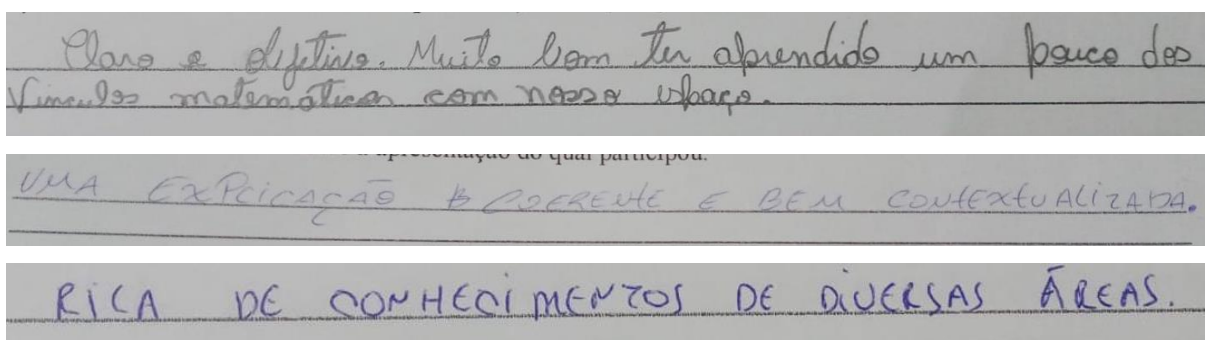 Claro e objetivo. Muito bom ter aprendido um pouco dos
vinculos matemáticos com nosso espaço.
apresentação do qual participou.
UMA EXPLICAÇÃO COERENTE E BEM CONTEXTUALIZADA.
RICA DE CONHECIMENTOS DE DIVERSAS ÁREAS.